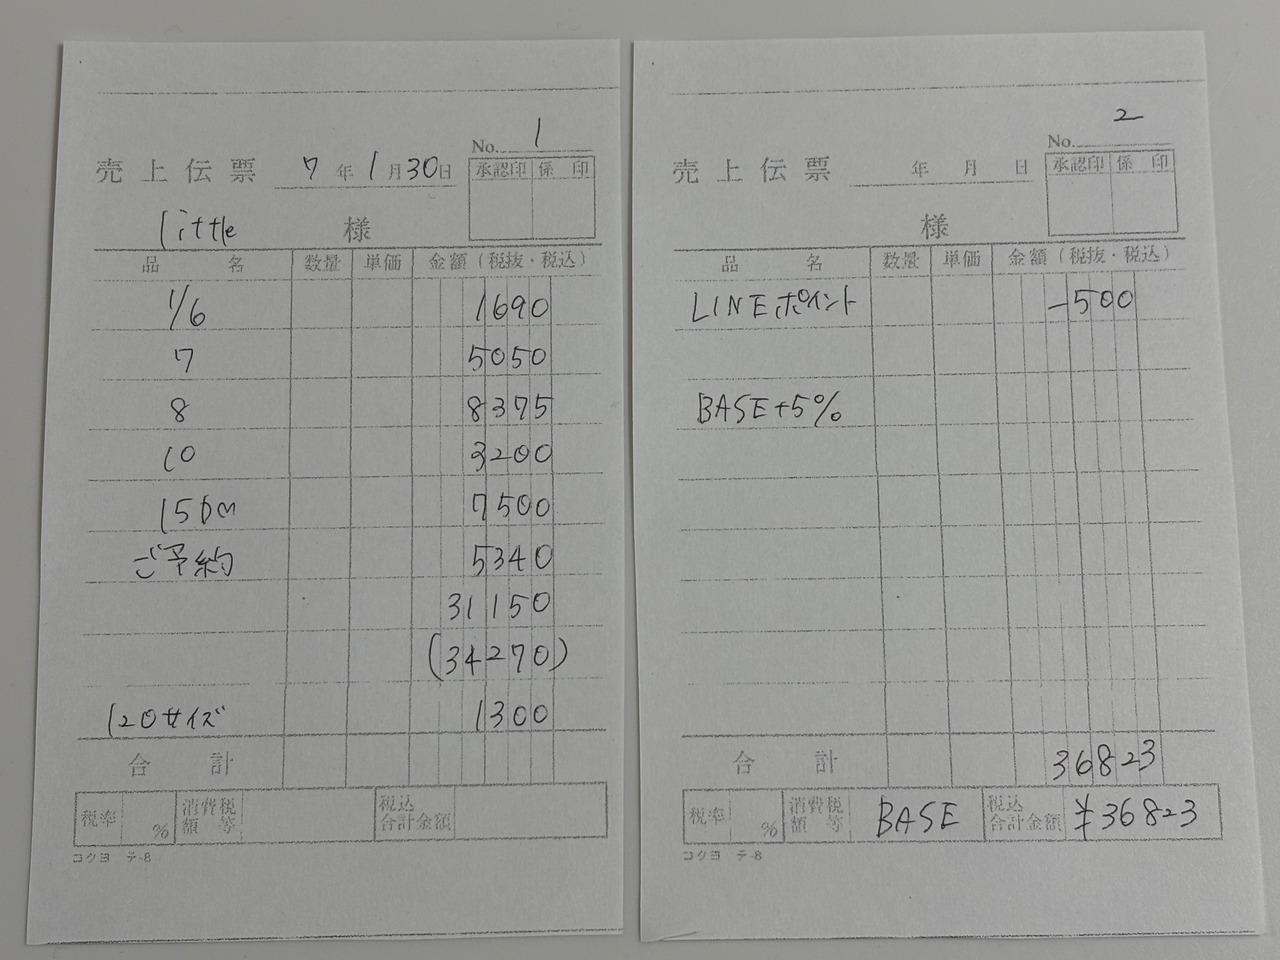 No. 1
売上伝票 7年1月30日
承認印 係印
little 様
品名 数量 単価 金額(税抜・税込)
1/6 1690
7 5050
8 8375
10 3200
15DM 7500
ご予約 5340
31150
(34270)
120サイズ 1300
合計
税率 % 消費税額等 税込合計金額
コクヨ テ-8
No. 2
売上伝票 年 月 日
承認印 係印
様
品名 数量 単価 金額(税抜・税込)
LINEポイント -500
BASE+5%
合計 36823
税率 % 消費税額等 BASE 税込合計金額 ¥36823
コクヨ テ-8